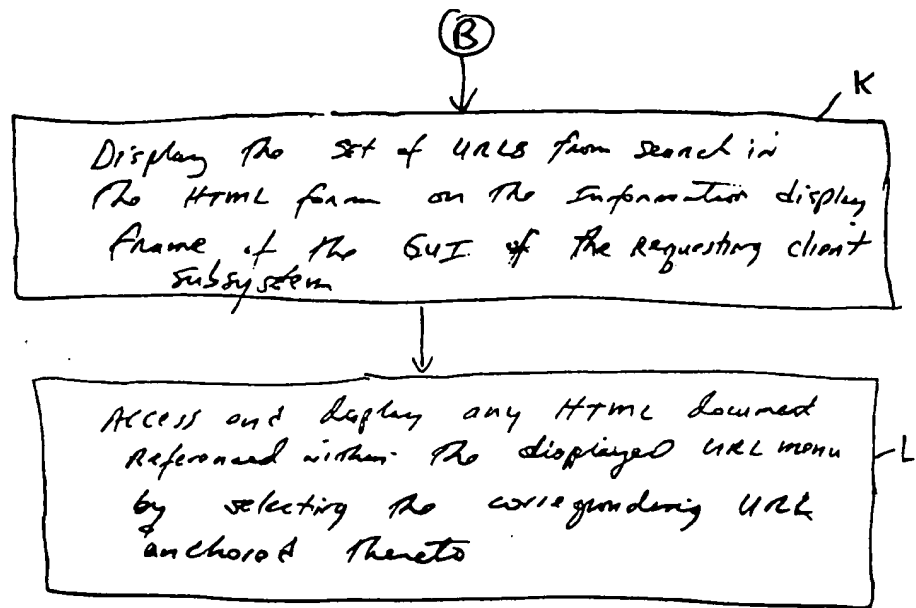 B
K
Display the set of URLs from search in
the HTML form on the Information display
frame of the GUI of the requesting client
subsystem
Access and display any HTML document
Referenced within the displayed URL menu
L
by selecting the corresponding URL
anchored thereto